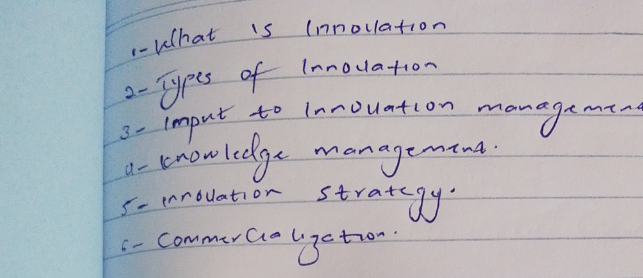 1- What is Innovation
2- Types of Innovation
3- Imput to Innovation management
4- knowledge management.
5- innovation strategy.
6- Commercialization.